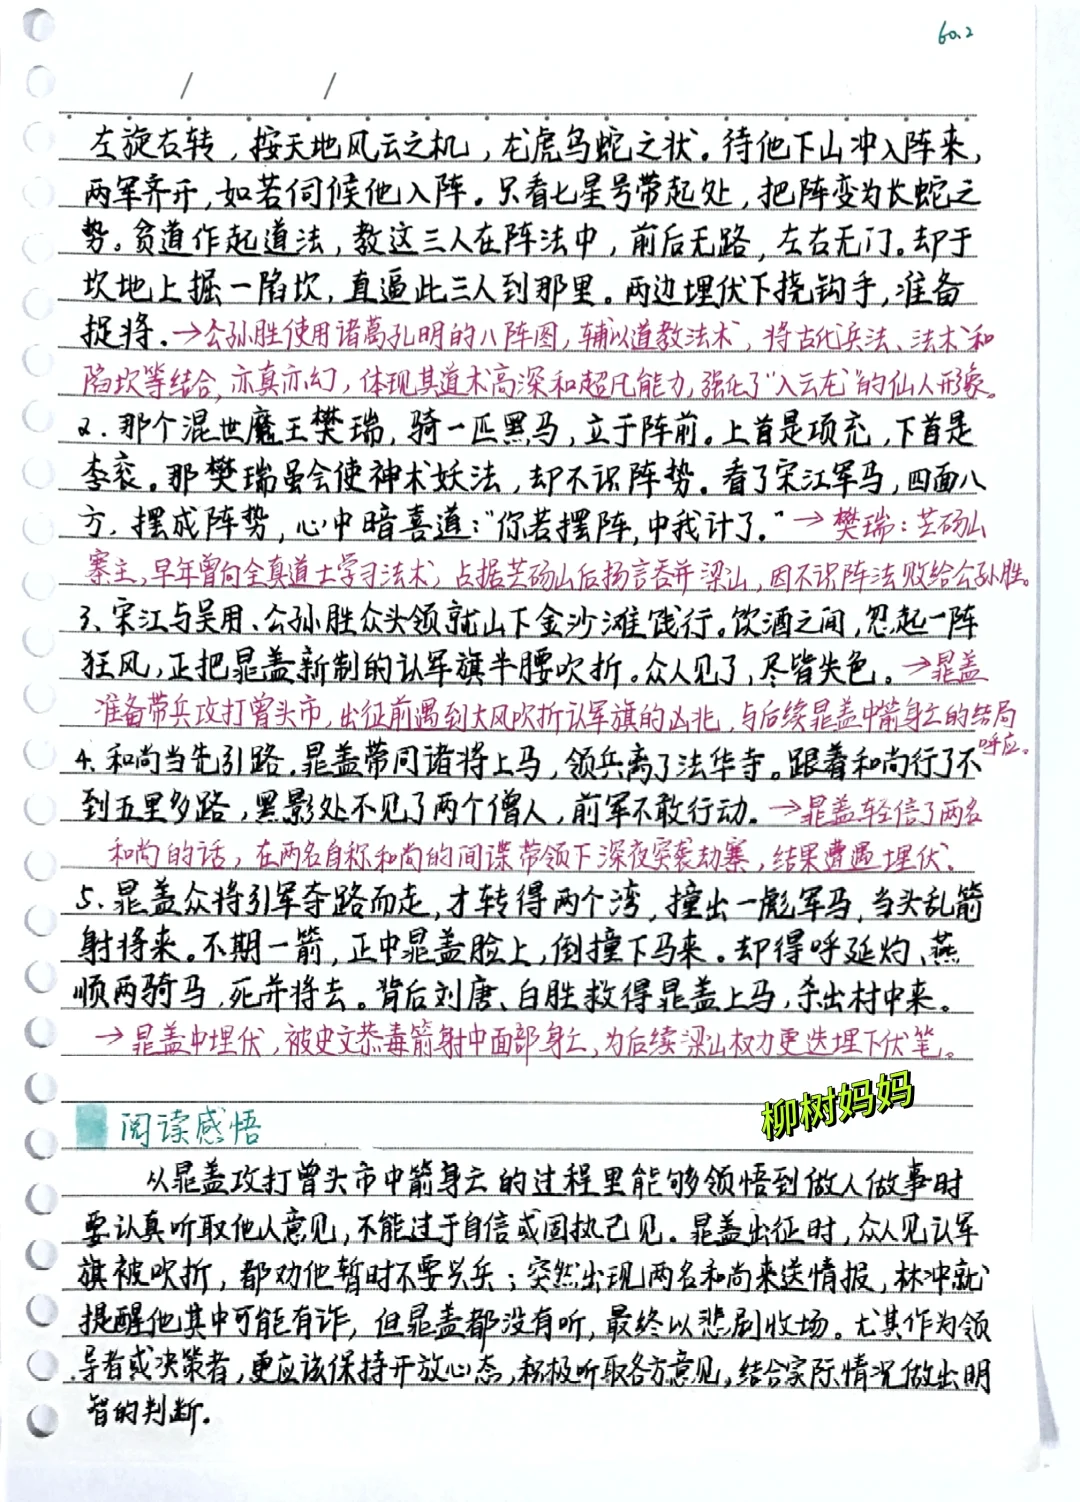 60.2
左旋右转，按天地风云之机，龙虎鸟蛇之状。待他下山冲入阵来，
两军齐开，如若伺候他入阵。只看七星号带起处，把阵变为长蛇之
势。贫道作起道法，教这三人在阵法中，前后无路，左右无门。却于
坎地上掘一陷坎，直逼此三人到那里。两边埋伏下挠钩手，准备
捉将。→公孙胜使用诸葛孔明的八阵图，辅以道教法术，将古代兵法、法术和
陷坎等结合，亦真亦幻，体现其道术高深和超凡能力，强化了“入云龙”的仙人形象。
2.那个混世魔王樊瑞，骑一匹黑马，立于阵前。上首是项充，下首是
李衮。那樊瑞虽会使神术妖法，却不识阵势。看了宋江军马，四面八
方，摆成阵势，心中暗喜道：“你若摆阵，中我计了。”→樊瑞：芒砀山
寨主，早年曾向全真道士学习法术，占据芒砀山后扬言吞并梁山，因不识阵法败给公孙胜。
3、宋江与吴用、公孙胜众头领就山下金沙滩饯行。饮酒之间，忽起一阵
狂风，正把晁盖新制的认军旗半腰吹折。众人见了，尽皆失色。→晁盖
准备带兵攻打曾头市，出征前遇到大风吹折认军旗的凶兆，与后续晁盖中箭身亡的结局
呼应。
4、和尚当先引路，晁盖带同诸将上马，领兵离了法华寺。跟着和尚行了不
到五里多路，黑影处不见了两个僧人，前军不敢行动。→晁盖轻信了两名
和尚的话，在两名自称和尚的间谍带领下深夜突袭劫寨，结果遭遇埋伏。
5、晁盖众将引军夺路而走，才转得两个湾，撞出一彪军马，当头乱箭
射将来。不期一箭，正中晁盖脸上，倒撞下马来。却得呼延灼、燕
顺两骑马，死并将去。背后刘唐、白胜救得晁盖上马，杀出村中来。
→晁盖中埋伏，被史文恭毒箭射中面部身亡，为后续梁山权力更迭埋下伏笔。
柳树妈妈
阅读感悟
从晁盖攻打曾头市中箭身亡的过程里能够领悟到做人做事时
要认真听取他人意见，不能过于自信或固执己见。晁盖出征时，众人见认军
旗被吹折，都劝他暂时不要兴兵；突然出现两名和尚来送情报，林冲就
提醒他其中可能有诈，但晁盖都没有听，最终以悲剧收场。尤其作为领
导者或决策者，更应该保持开放心态，积极听取各方意见，结合实际情况做出明
智的判断。